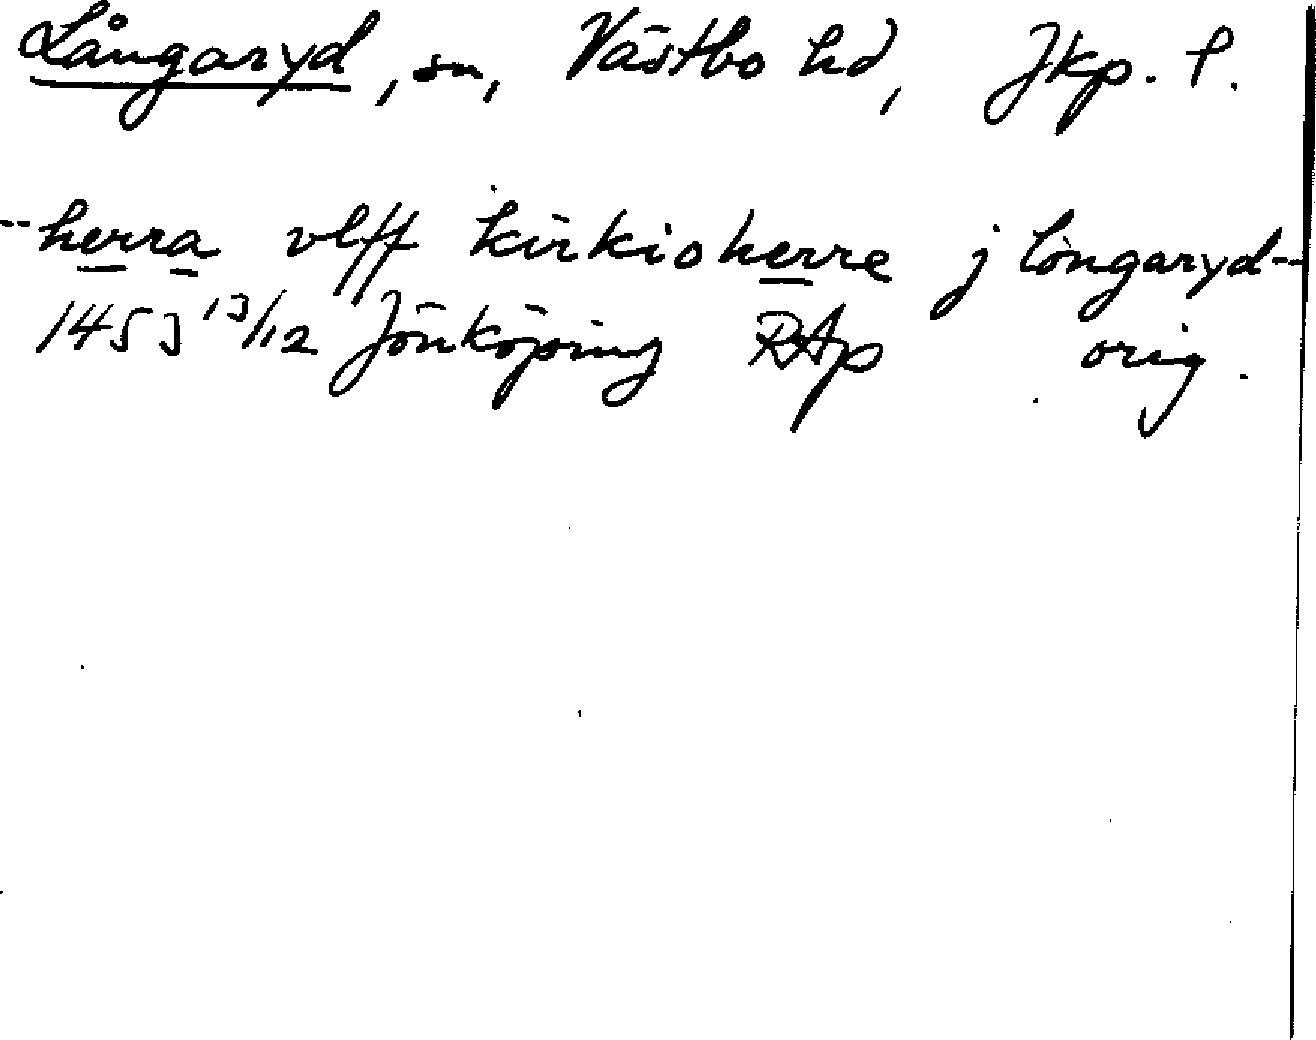 Långaryd, sn, Västbo hd, Jkp. l.
--herra vlff kirkioherre j longaryd--
1453 13/12 Jönköping RAp orig.